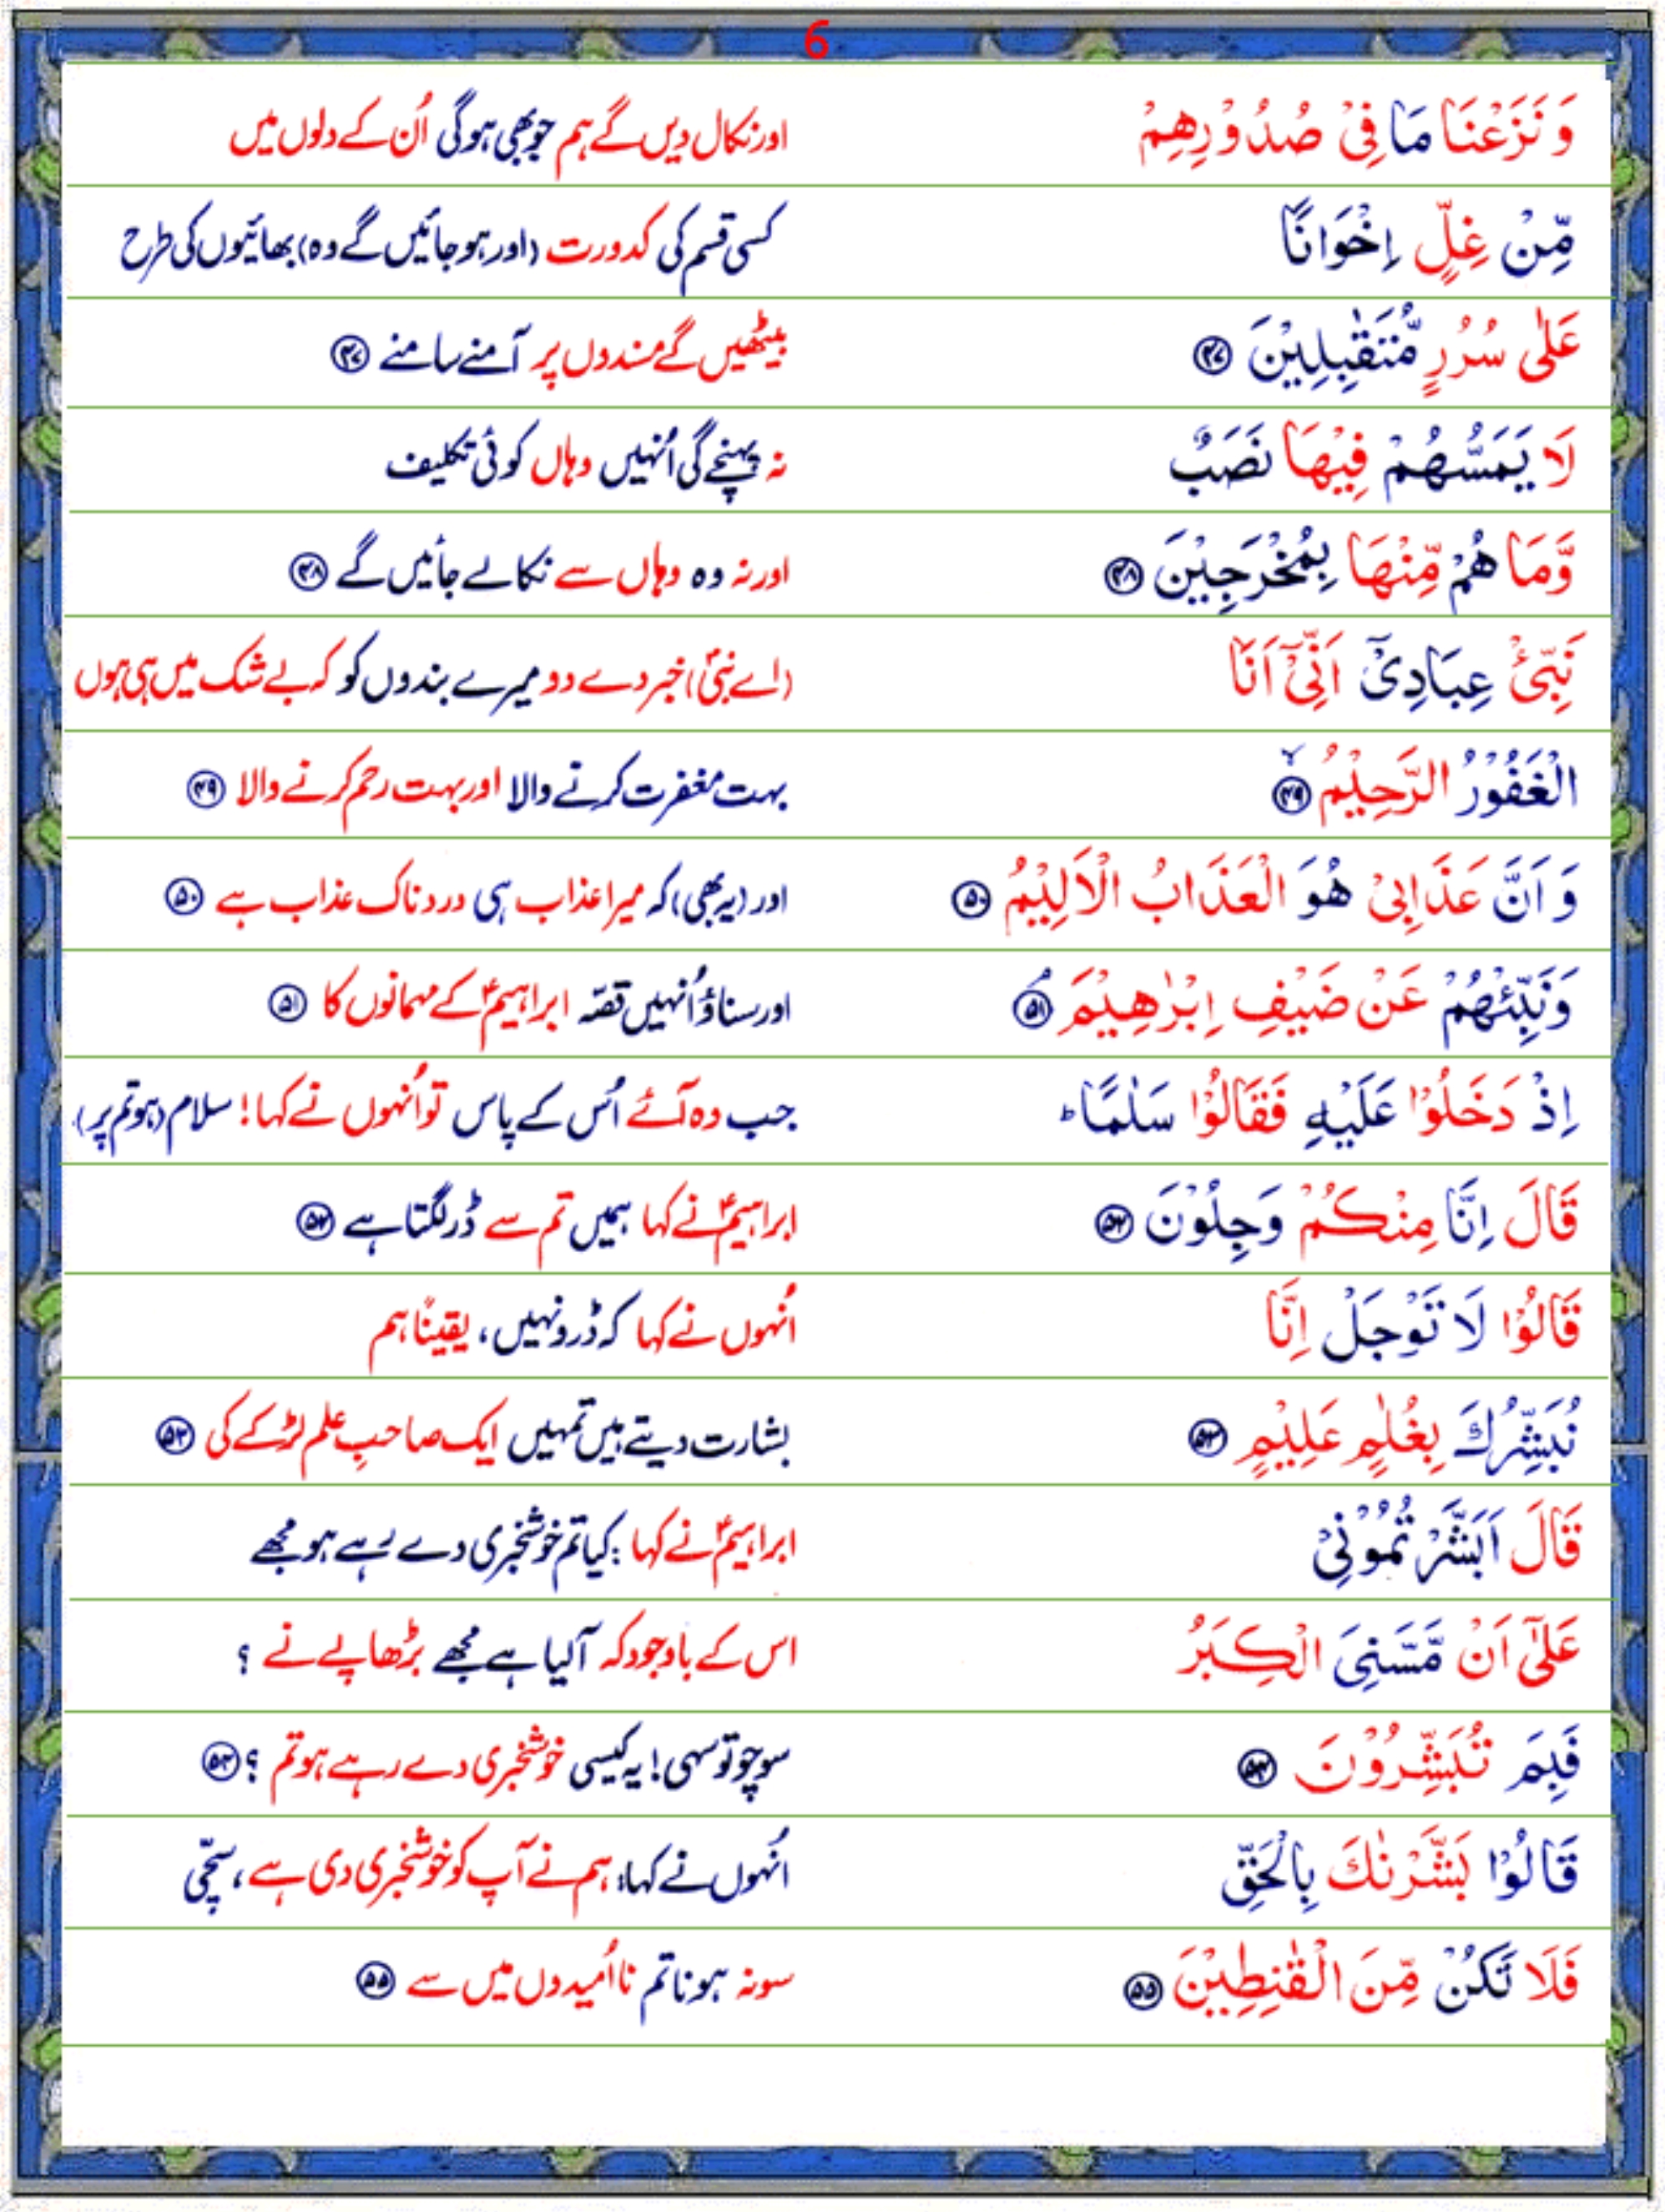 6
وَ نَزَعْنَا مَا فِیْ صُدُوْرِهِمْ اور نکال دیں گے ہم جو بھی ہوگی اُن کے دلوں میں
مِّنْ غِلٍّ اِخْوَانًا کسی قسم کی کدورت (اور ہو جائیں گے وہ) بھائیوں کی طرح
عَلٰی سُرُرٍ مُّتَقٰبِلِیْنَ ۴۷ بیٹھیں گے مسندوں پر آمنے سامنے ۴۷
لَا یَمَسُّهُمْ فِیْهَا نَصَبٌ نہ پہنچے گی اُنہیں وہاں کوئی تکلیف
وَّمَا هُمْ مِّنْهَا بِمُخْرَجِیْنَ ۴۸ اور نہ وہ وہاں سے نکالے جائیں گے ۴۸
نَبِّئْ عِبَادِیْۤ اَنِّیْۤ اَنَا (اے نبیؐ) خبر دے دو میرے بندوں کو کہ بے شک میں ہی ہوں
الْغَفُوْرُ الرَّحِیْمُ ۴۹ بہت مغفرت کرنے والا اور بہت رحم کرنے والا ۴۹
وَ اَنَّ عَذَابِیْ هُوَ الْعَذَابُ الْاَلِیْمُ ۵۰ اور (یہ بھی) کہ میرا عذاب ہی دردناک عذاب ہے ۵۰
وَنَبِّئْهُمْ عَنْ ضَیْفِ اِبْرٰهِیْمَ ۵۱ اور سناؤ اُنہیں قصّہ ابراہیمؑ کے مہمانوں کا ۵۱
اِذْ دَخَلُوْا عَلَیْهِ فَقَالُوْا سَلٰمًا ؕ جب وہ آئے اُس کے پاس تو اُنہوں نے کہا! سلام (ہو تم پر)
قَالَ اِنَّا مِنْكُمْ وَجِلُوْنَ ۵۲ ابراہیمؑ نے کہا ہمیں تم سے ڈر لگتا ہے ۵۲
قَالُوْا لَا تَوْجَلْ اِنَّا اُنہوں نے کہا کہ ڈرو نہیں، یقینًا ہم
نُبَشِّرُكَ بِغُلٰمٍ عَلِیْمٍ ۵۳ بشارت دیتے ہیں تمہیں ایک صاحبِ علم لڑکے کی ۵۳
قَالَ اَبَشَّرْتُمُوْنِیْ ابراہیمؑ نے کہا: کیا تم خوشخبری دے رہے ہو مجھے
عَلٰۤی اَنْ مَّسَّنِیَ الْكِبَرُ اس کے باوجود کہ آلیا ہے مجھے بڑھاپے نے ؟
فَبِمَ تُبَشِّرُوْنَ ۵۴ سوچو تو سہی! یہ کیسی خوشخبری دے رہے ہو تم ؟ ۵۴
قَالُوْا بَشَّرْنٰكَ بِالْحَقِّ اُنہوں نے کہا: ہم نے آپ کو خوشخبری دی ہے، سچّی
فَلَا تَكُنْ مِّنَ الْقٰنِطِیْنَ ۵۵ سو نہ ہونا تم نااُمیدوں میں سے ۵۵